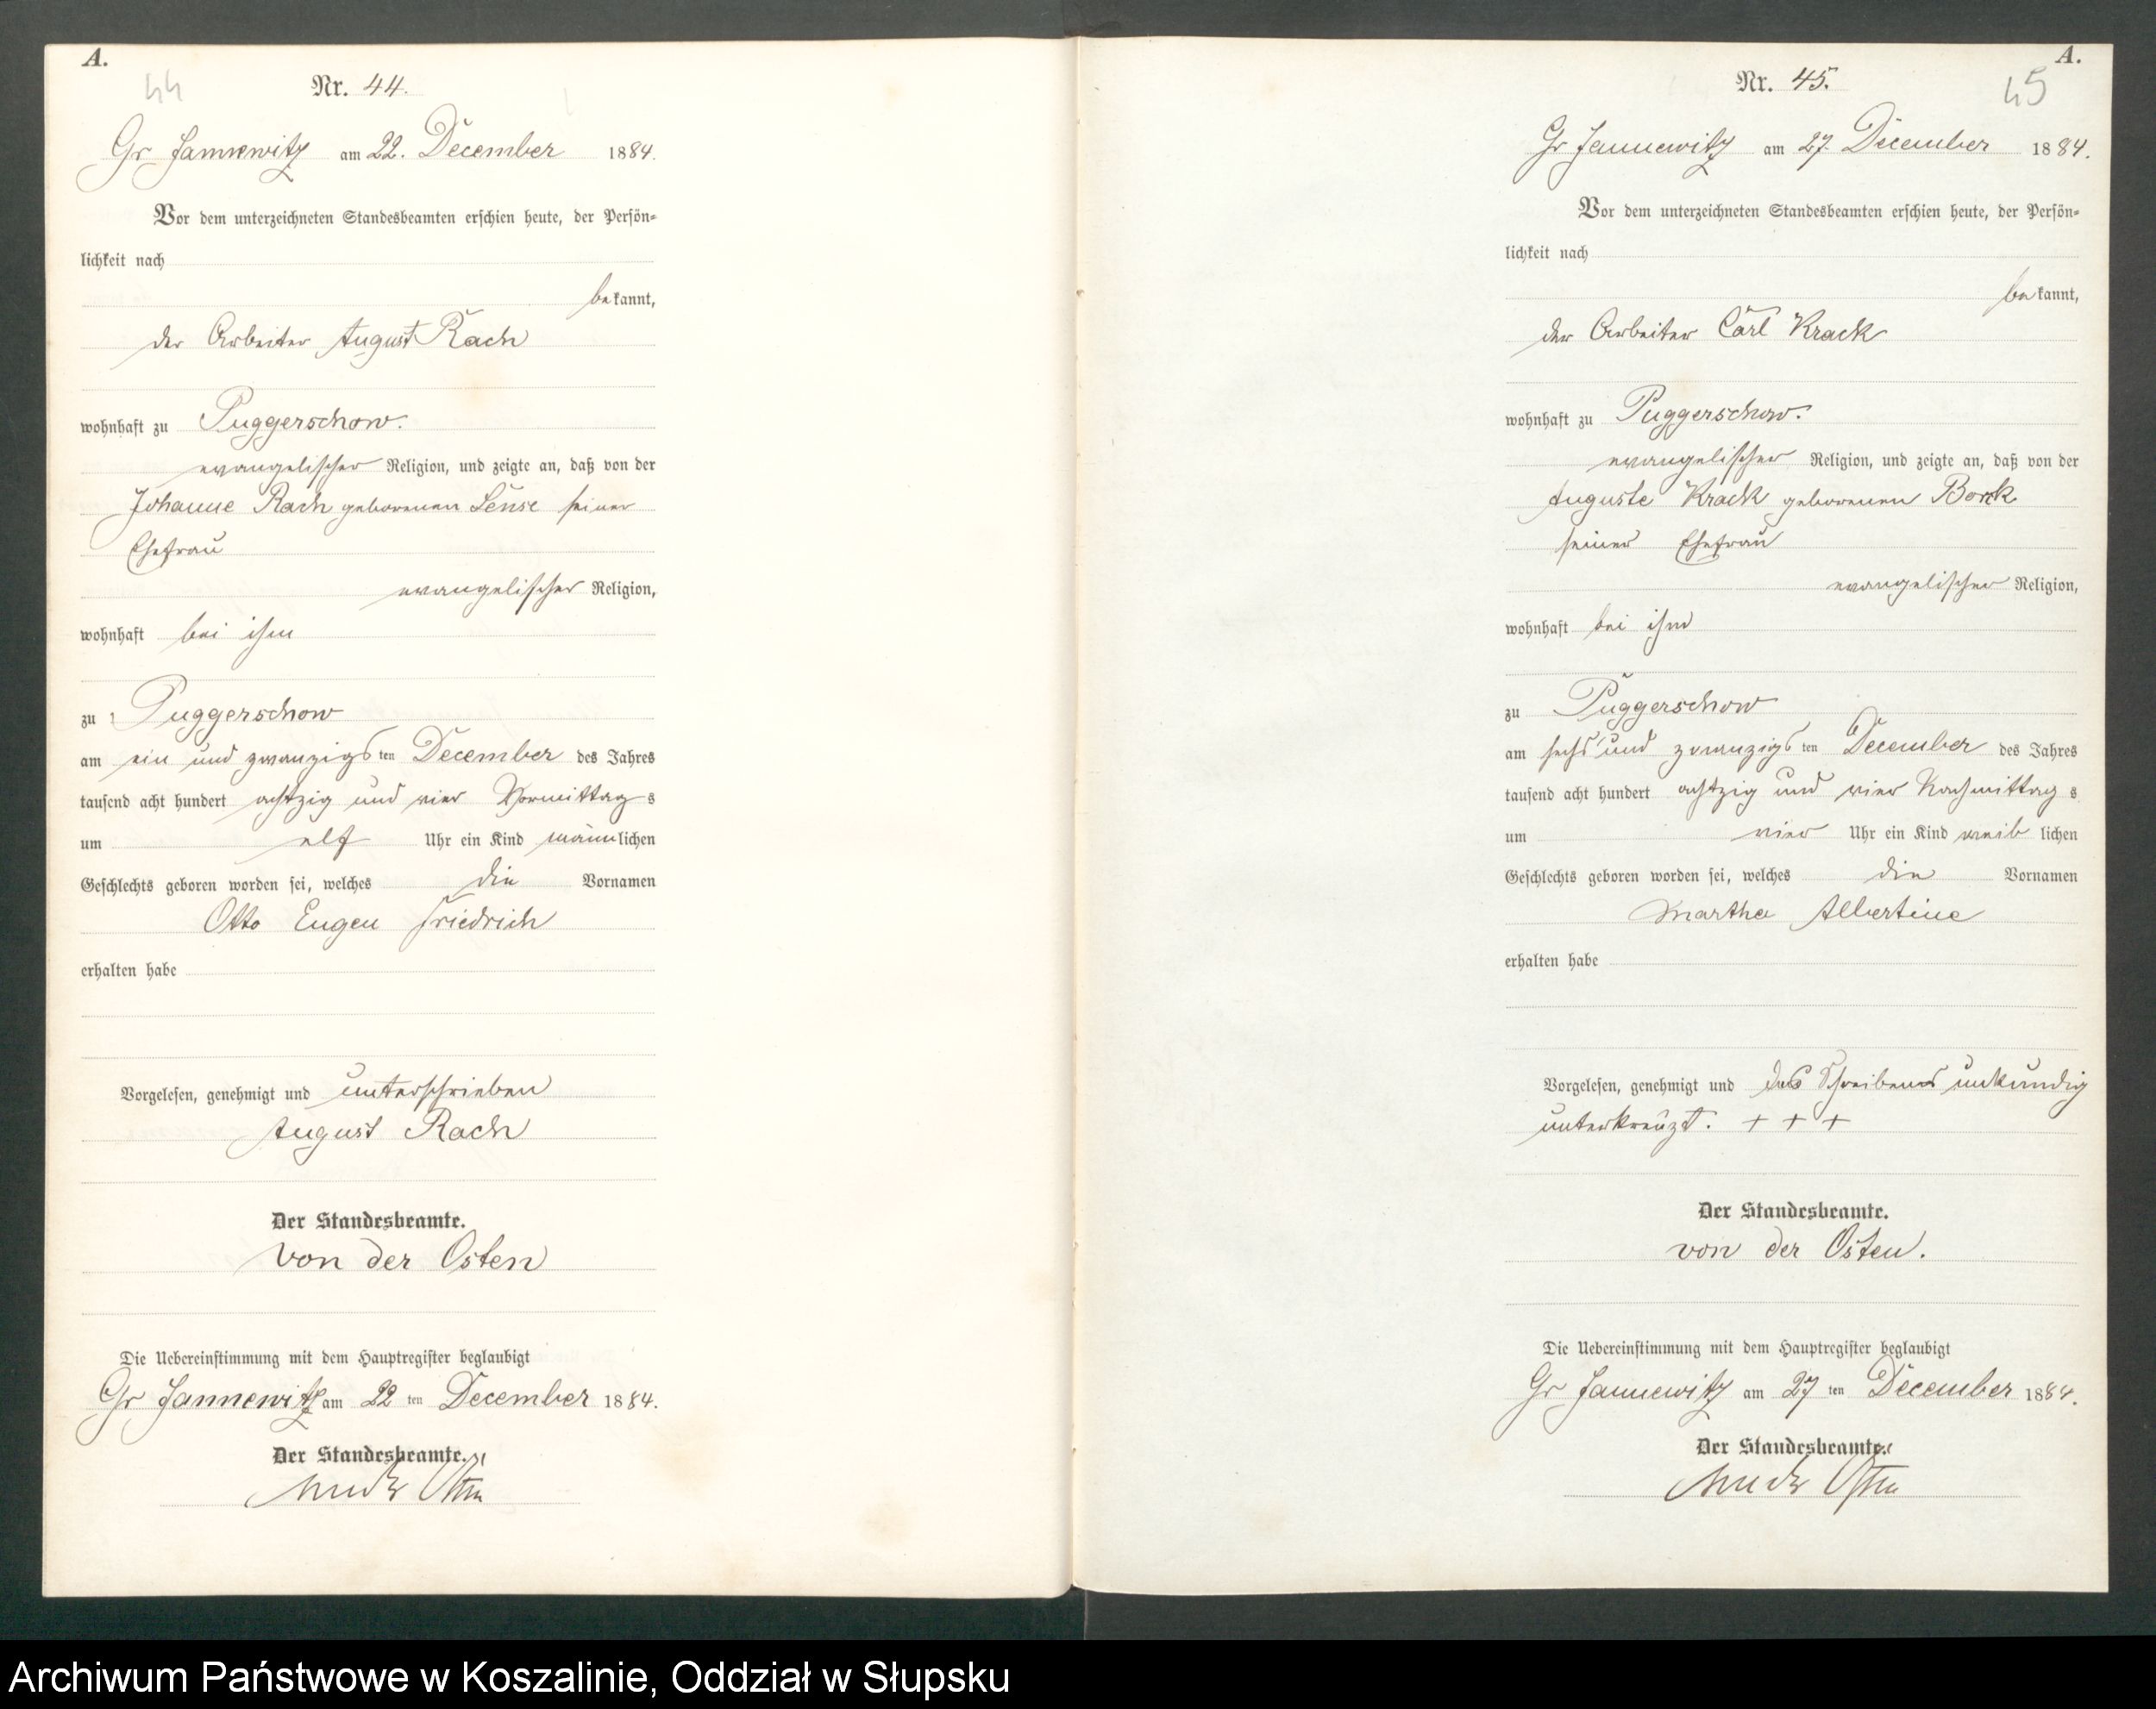 A.
44
Nr. 44.
Gr Jannewitz am 22. December 1884.
Vor dem unterzeichneten Standesbeamten erschien heute, der Persön-
lichkeit nach
bekannt,
der Arbeiter August Rach
wohnhaft zu Puggerschow.
evangelischer Religion, und zeigte an, daß von der
Johanne Rach geborenen Lense seiner
Ehefrau
evangelischer Religion,
wohnhaft bei ihm
zu Puggerschow
am ein und zwanzigsten December des Jahres
tausend acht hundert achtzig und vier Vormittags
um elf Uhr ein Kind männlichen
Geschlechts geboren worden sei, welches die Vornamen
Otto Eugen Friedrich
erhalten habe
Vorgelesen, genehmigt und unterschrieben
August Rach
Der Standesbeamte.
von der Osten
Die Uebereinstimmung mit dem Hauptregister beglaubigt
Gr Jannewitz am 22 ten December 1884.
Der Standesbeamte.
von der Osten
A.
45
Nr. 45.
Gr Jannewitz am 27. December 1884.
Vor dem unterzeichneten Standesbeamten erschien heute, der Persön-
lichkeit nach
bekannt,
der Arbeiter Carl Krack
wohnhaft zu Puggerschow.
evangelischer Religion, und zeigte an, daß von der
Auguste Krack geborenen Borck
seiner Ehefrau
evangelischer Religion,
wohnhaft bei ihm
zu Puggerschow
am sechs und zwanzigsten December des Jahres
tausend acht hundert achtzig und vier Nachmittags
um vier Uhr ein Kind weiblichen
Geschlechts geboren worden sei, welches die Vornamen
Martha Albertine
erhalten habe
Vorgelesen, genehmigt und des Schreibens unkundig
unterkreuzt. + + +
Der Standesbeamte.
von der Osten.
Die Uebereinstimmung mit dem Hauptregister beglaubigt
Gr Jannewitz am 27 ten December 1884.
Der Standesbeamte.
von der Osten
Archiwum Państwowe w Koszalinie, Oddział w Słupsku